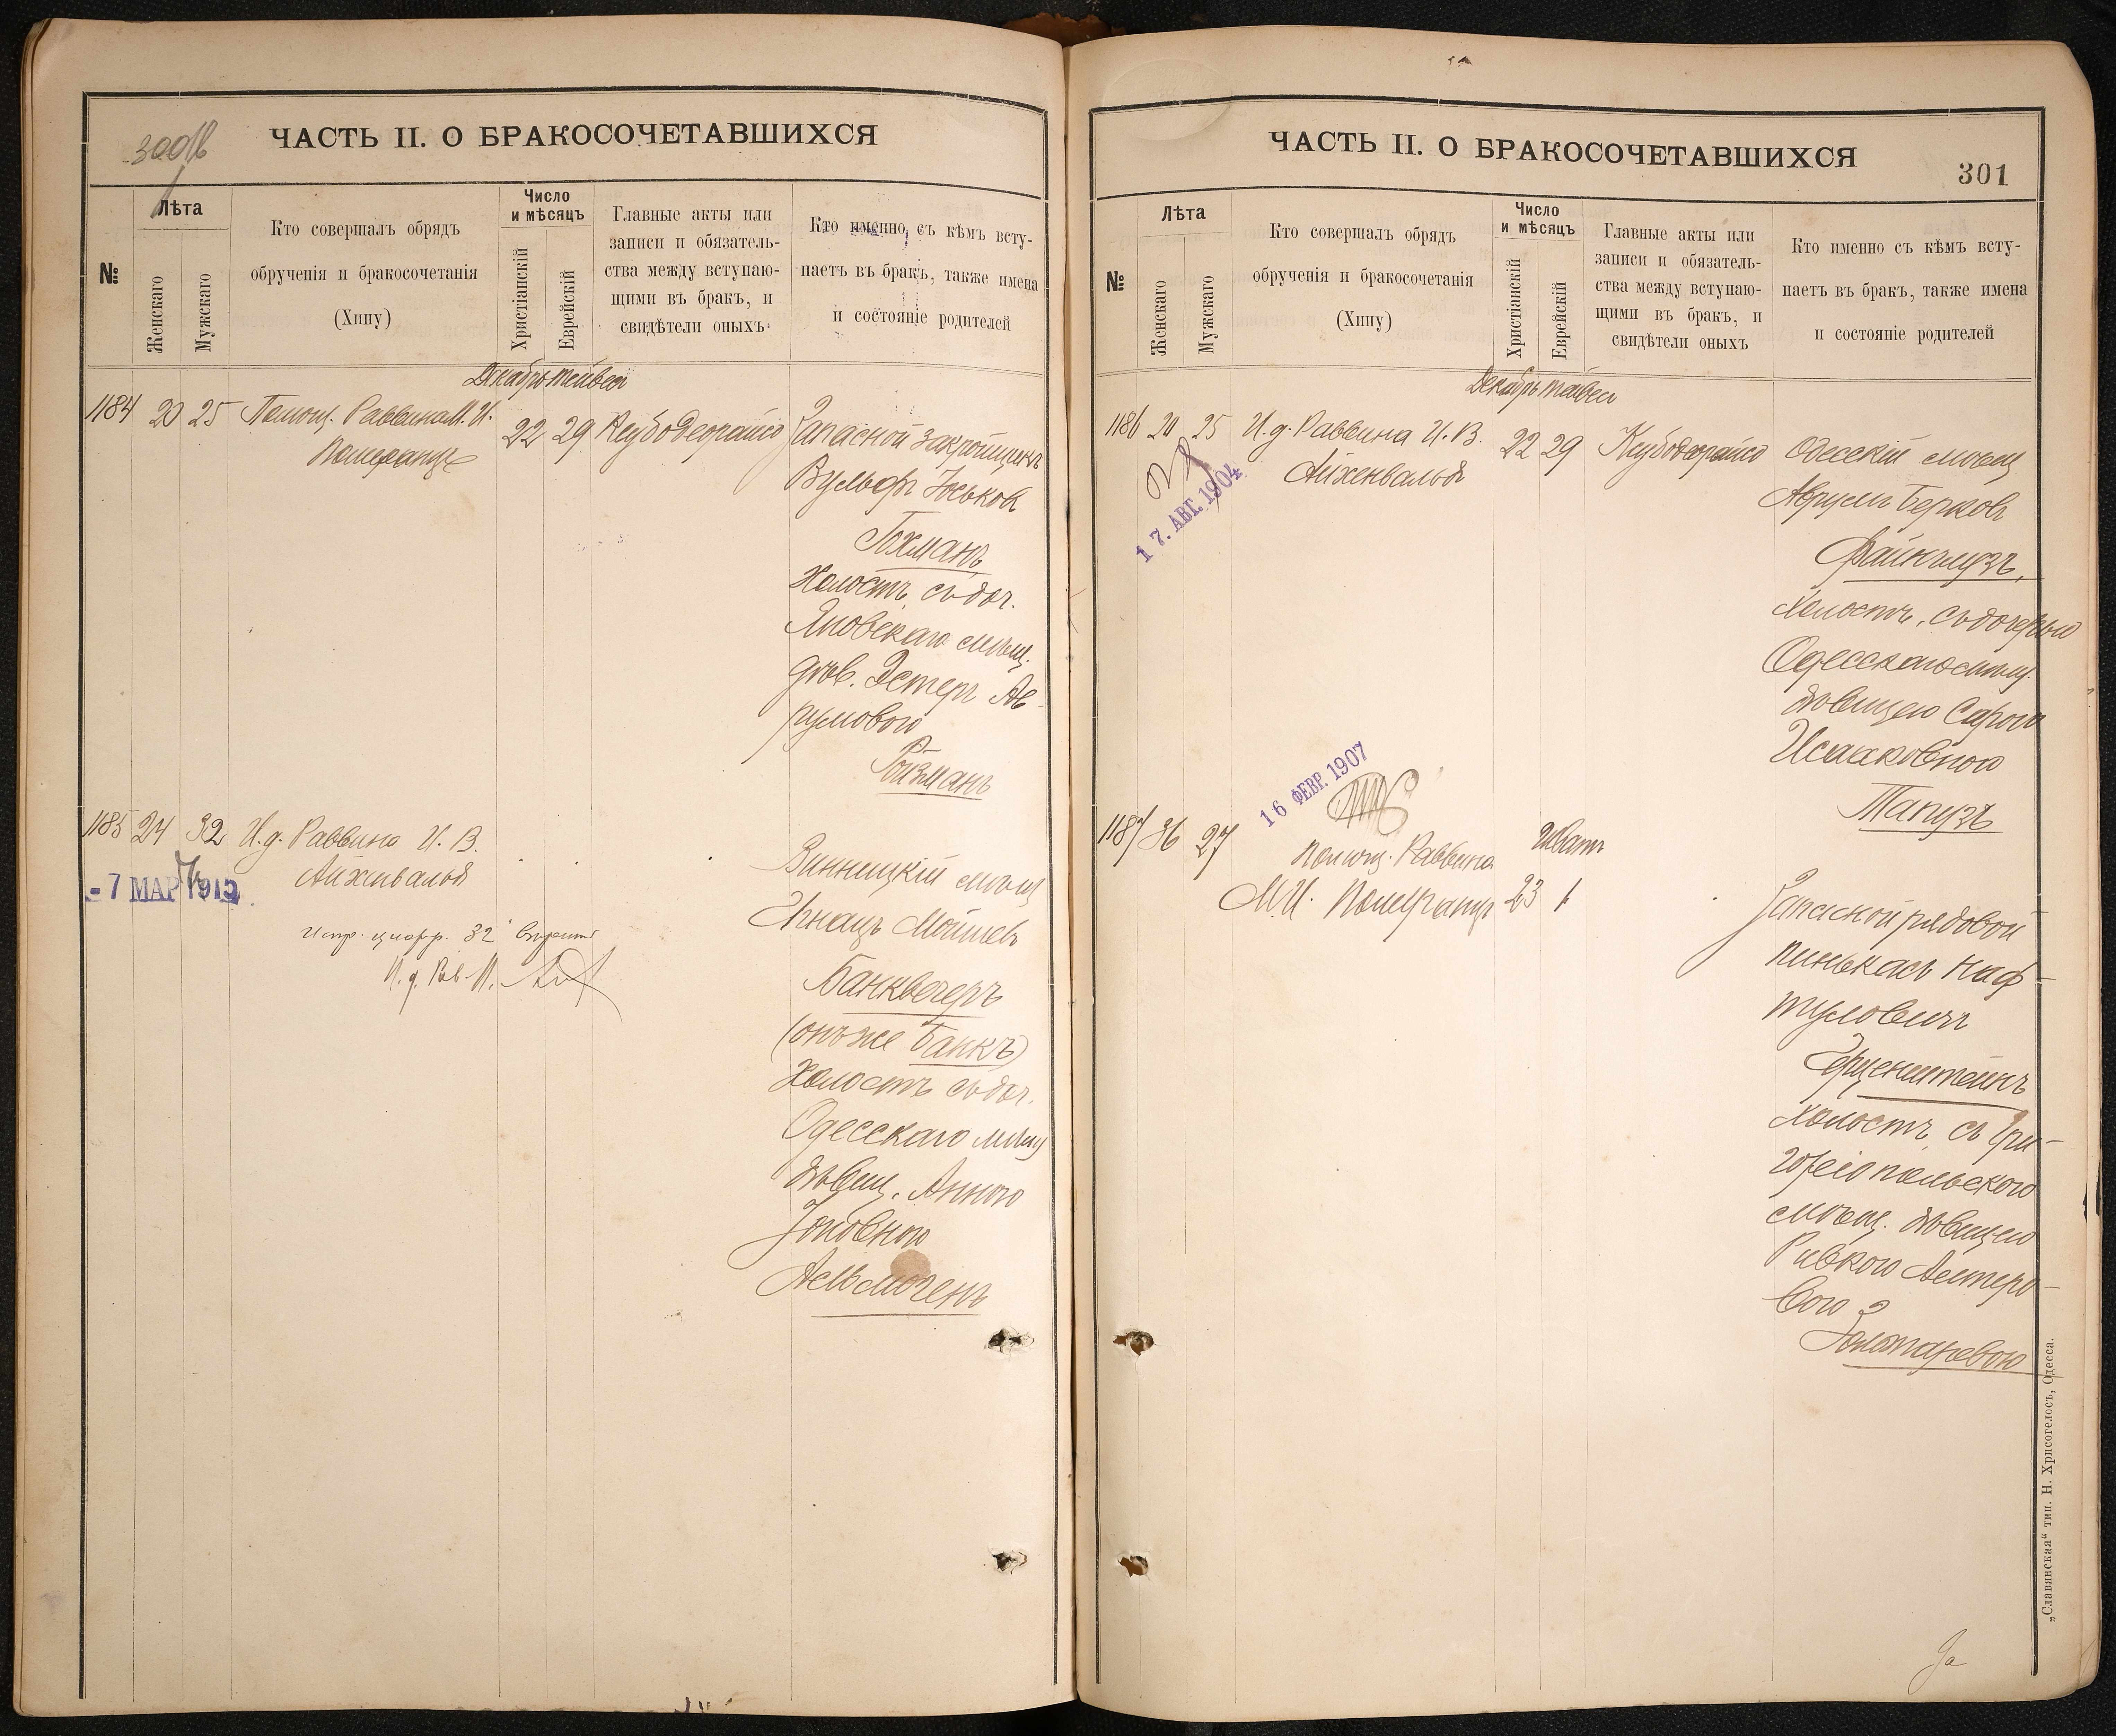 300 об
ЧАСТЬ II. О БРАКОСОЧЕТАВШИХСЯ
№
Лѣта
Женскаго
Мужскаго
Кто совершалъ обрядъ
обрученія и бракосочетанія
(Хипу)
Число
и мѣсяцъ
Христіанскій
Еврейскій
Главные акты или
записи и обязатель-
ства между вступаю-
щими въ бракъ, и
свидѣтели оныхъ
Кто именно, съ кѣмъ всту-
паетъ въ бракъ, также имена
и состояніе родителей
Декабрь Тейвес
1184 20 25 Помощ. Раввина М. И.
Померанцъ
22 29 Ксубодеорайсо
Запасной закройщикъ
Вульфъ Іоськов
Гохманъ,
Холостъ, съ доч.
Яновскаго мѣщ.
дѣв. Эстеръ Ав-
румовою
Ройзманъ
1185 24 32 И. д. Раввина И. В.
Айхенвальд
- 7 МАР 1915
Испр. цифр. "32" вѣрить
И. д. Рав.
Винницкій мѣщ
Игнацъ Мойшев
Банквечеръ
(онъ же Банкъ)
Холостъ съ доч.
Одесскаго мѣщ
дѣвиц. Анною
Іоновною
ЧАСТЬ II. О БРАКОСОЧЕТАВШИХСЯ
301
№
Лѣта
Женскаго
Мужскаго
Кто совершалъ обрядъ
обрученія и бракосочетанія
(Хипу)
Число
и мѣсяцъ
Христіанскій
Еврейскій
Главные акты или
записи и обязатель-
ства между вступаю-
щими въ бракъ, и
свидѣтели оныхъ
Кто именно съ кѣмъ всту-
паетъ въ бракъ, также имена
и состояніе родителей
Декабрь Тейвес
1186 20 25 И. д. Раввина И. В.
Айхенвальд
17. АВГ. 1904
22 29 Ксубодеорайсо
Одесскій мѣщ
Аврумъ Берковъ
Файнгиузъ,
Холостъ, съ дочерью
Одесскаго мѣщ.
дѣвицею Сарою
Исааковною
Тапузъ
16 ФЕВР. 1907
1187 36 27
Помощ. Раввина
М. И. Померанцъ
Шват
23 1
Запасной рядовой
Пинькасъ Наф-
туловичъ
Герценштейнъ
Холостъ, съ Гри-
горіопольскою
мѣщ. дѣвицею
Ривкою Лейтеро-
вою
Золотаревою
„Славянская“ тип. Н. Хрисогелосъ, Одесса.